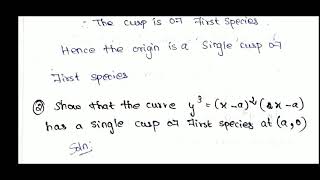 ∴ The cusp is of First species.
Hence the origin is a Single cusp of
First species
② Show that the curve y³ = (x-a)² (2x-a)
has a single cusp of First species at (a,0)
Soln: